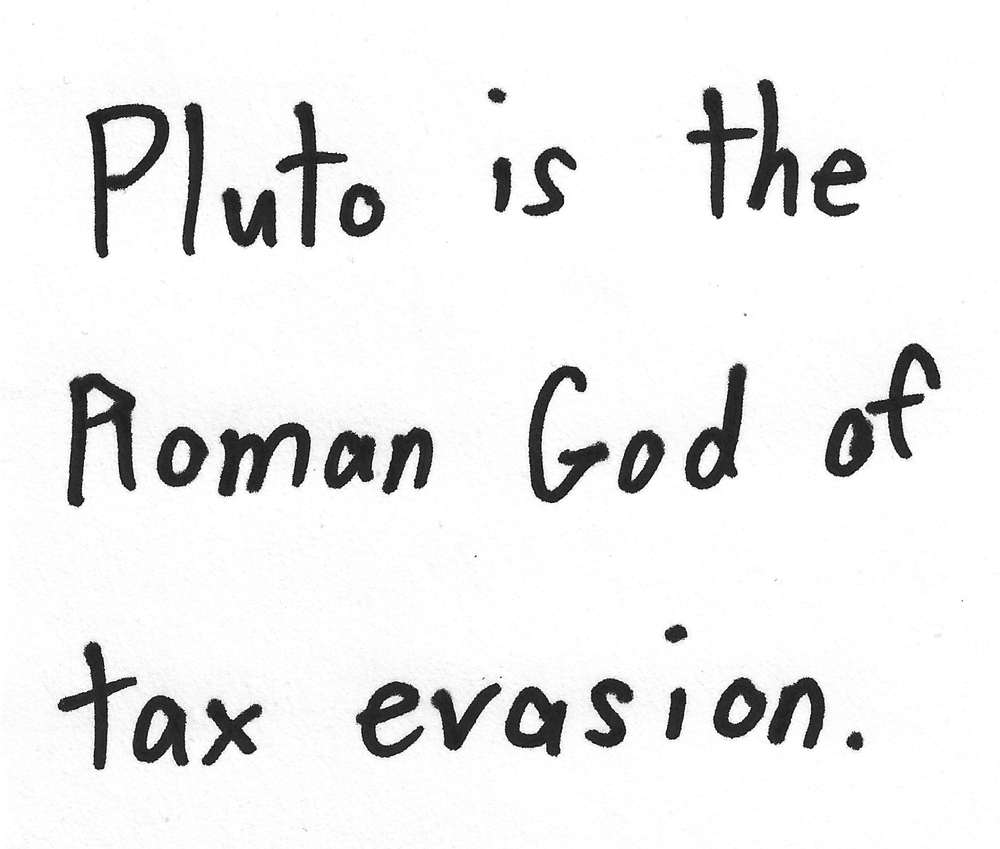 Pluto is the
Roman God of
tax evasion.